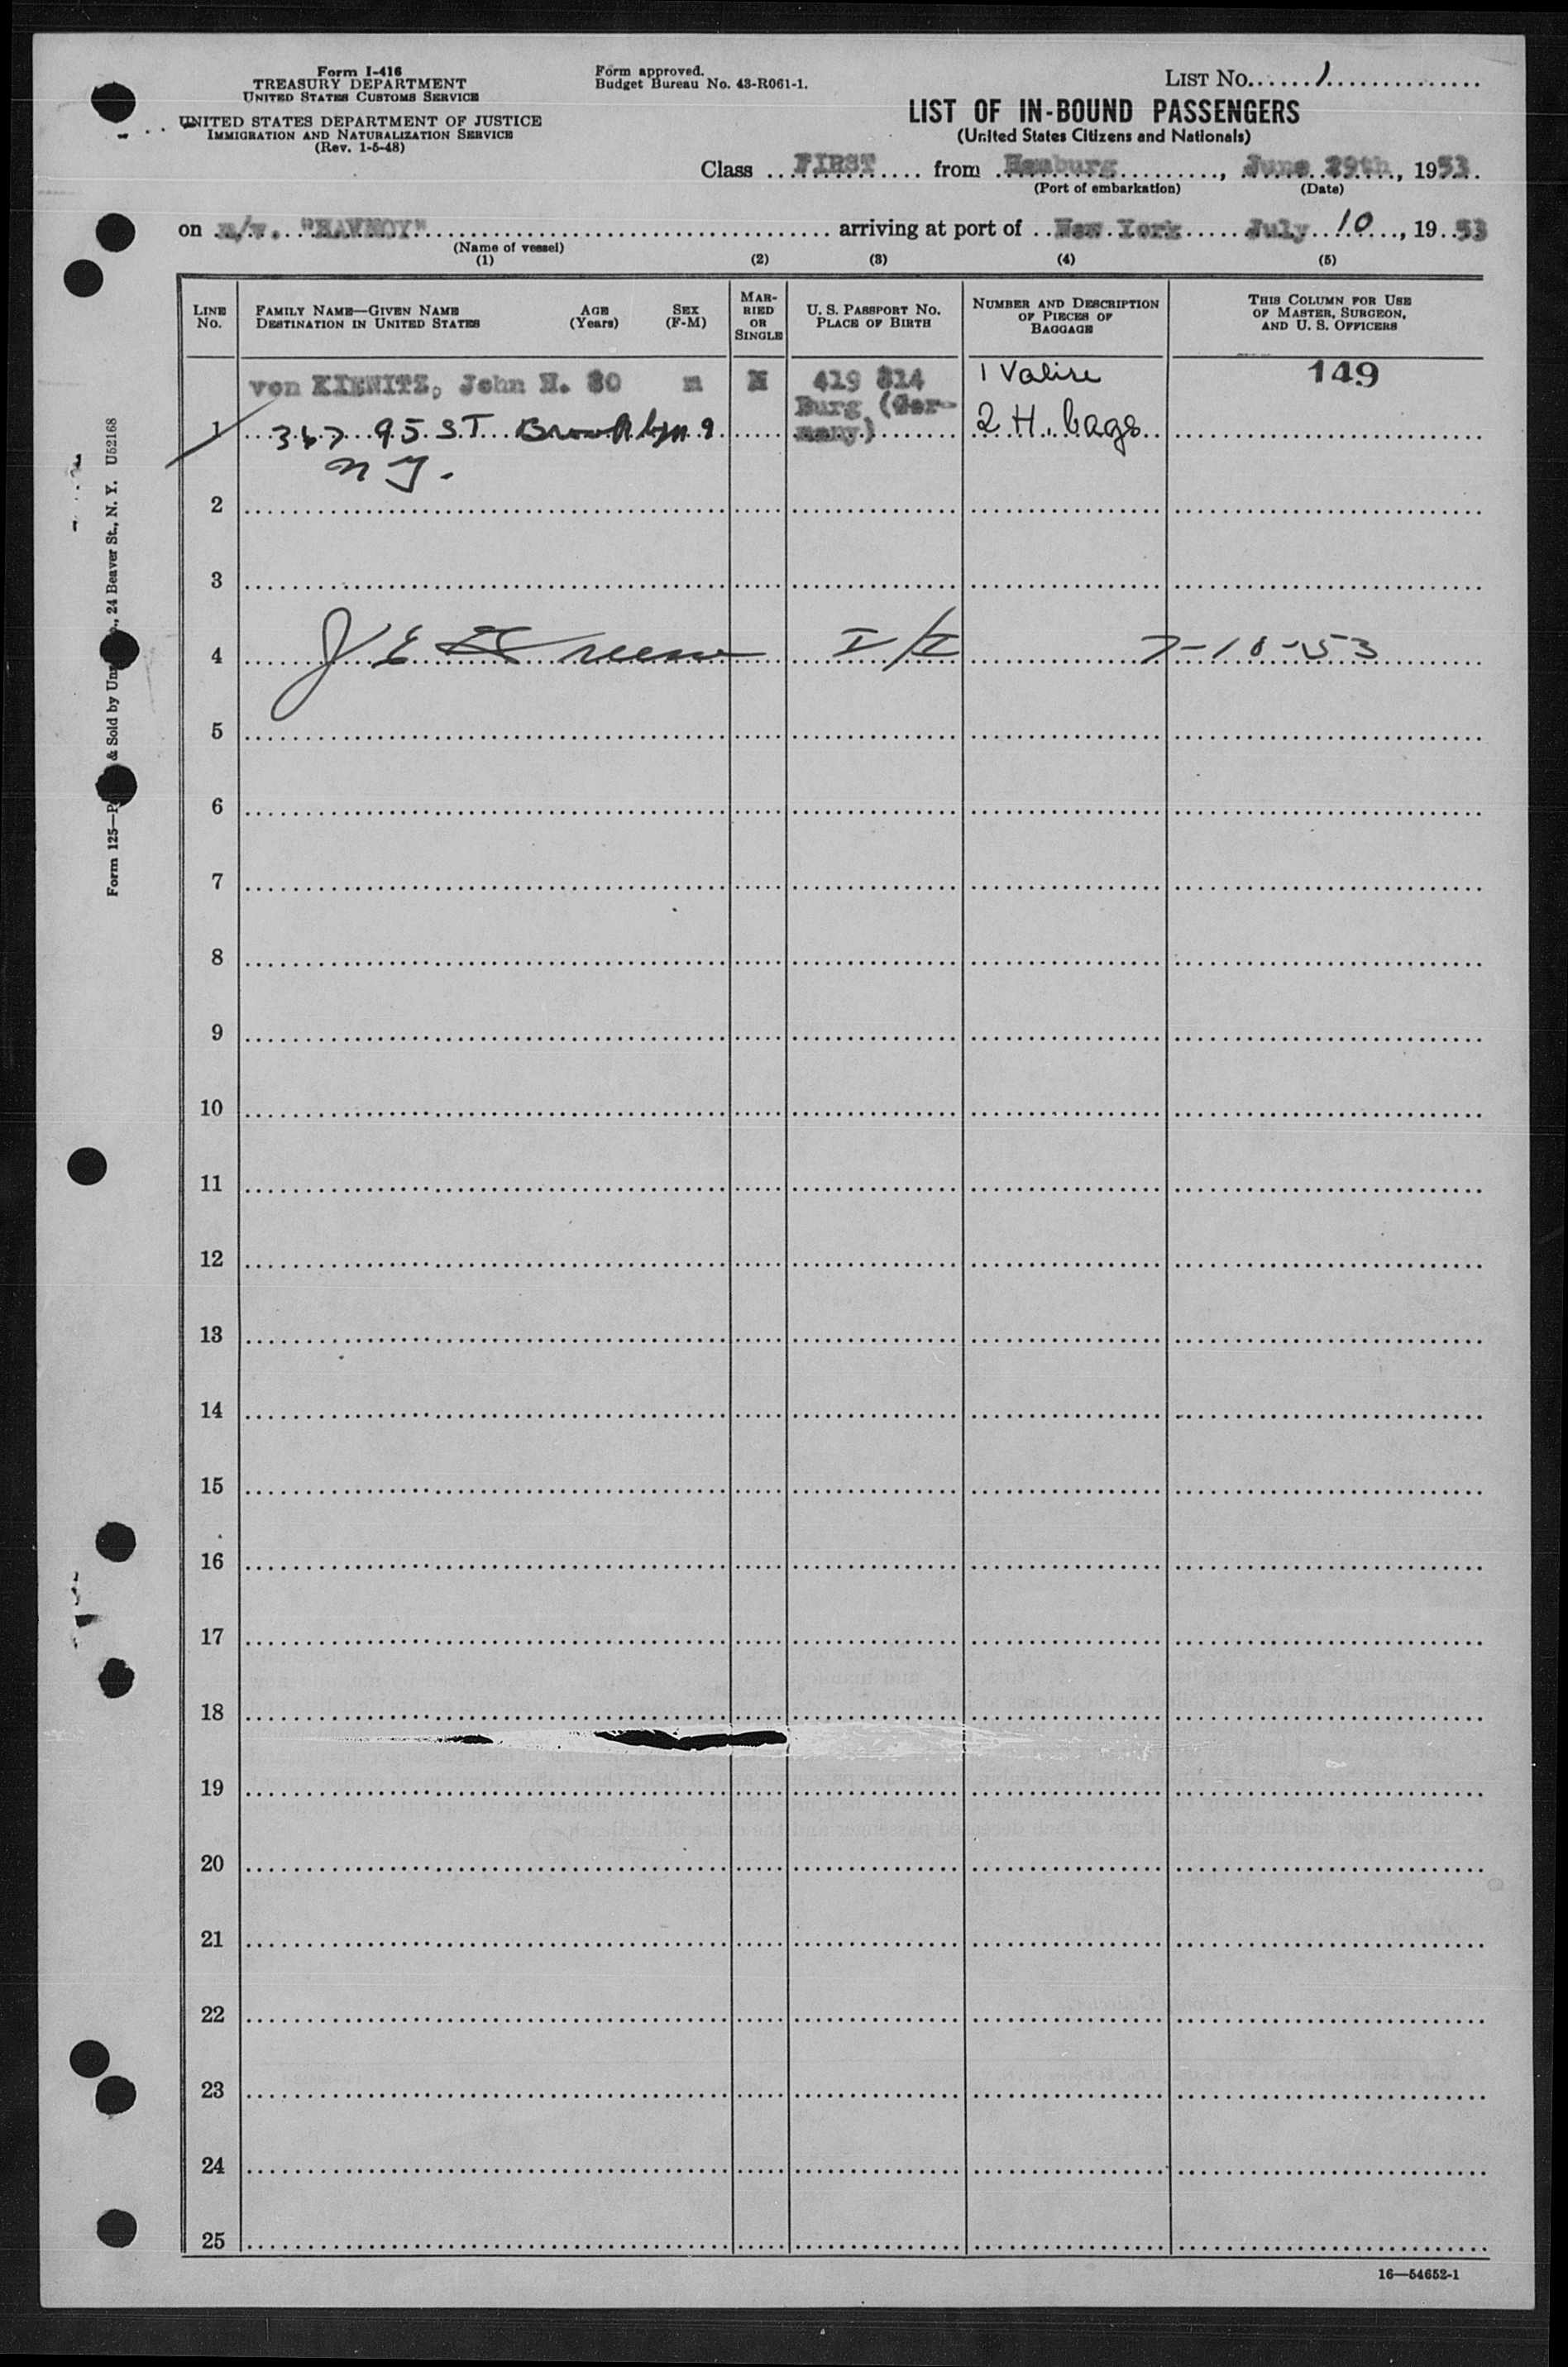 Form I-416
TREASURY DEPARTMENT
UNITED STATES CUSTOMS SERVICE
UNITED STATES DEPARTMENT OF JUSTICE
IMMIGRATION AND NATURALIZATION SERVICE
(Rev. 1-5-48)
Form approved.
Budget Bureau No. 43-R061-1.
LIST No. 1
LIST OF IN-BOUND PASSENGERS
(United States Citizens and Nationals)
Class FIRST from Hamburg, June 29th, 1953
(Port of embarkation) (Date)
on m/v. "HAVMOY" arriving at port of New York July 10, 1953
(Name of vessel)
(1) (2) (3) (4) (5)
LINE No.
FAMILY NAME—GIVEN NAME
DESTINATION IN UNITED STATES
AGE (Years)
SEX (F-M)
MARRIED OR SINGLE
U. S. PASSPORT NO.
PLACE OF BIRTH
NUMBER AND DESCRIPTION OF PIECES OF BAGGAGE
THIS COLUMN FOR USE OF MASTER, SURGEON, AND U. S. OFFICERS
von KIENITZ, John H. 80 m M 419 814 1 Valise 149
Burg (Ger-
1 367 95 ST Brooklyn 9 many) 2 H. bags
N Y.
2
3
4 J E Greene I/I 7-10-53
5
6
7
8
9
10
11
12
13
14
15
16
17
18
19
20
21
22
23
24
25
16—54652-1
Form 125— & Sold by , 24 Beaver St., N. Y. U52168